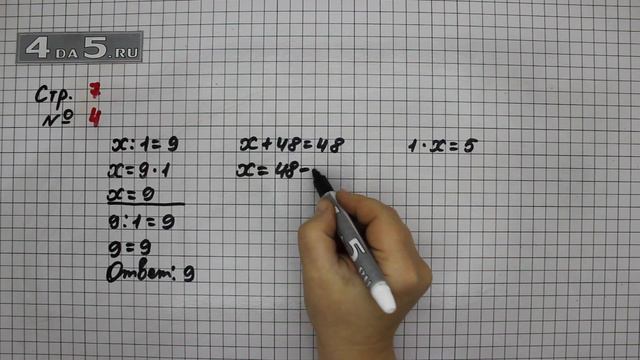 4DA5.RU
Стр. 7
№ 4
x : 1 = 9
x = 9 · 1
x = 9
9 : 1 = 9
9 = 9
Ответ: 9
x + 48 = 48
x = 48 -
1 · x = 5
5